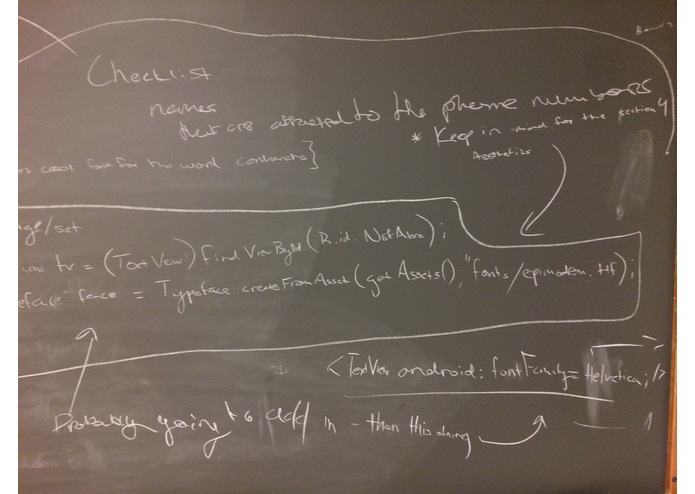 Checklist
names
that are attached to the phone numbers
* Keep in mind for the section 4
Aesthetics
cool font for the word contacts]
/set
tv = (TextView) findViewById(R.id.NotAlone);
face = Typeface.createFromAsset(getAssets(), "fonts/epimodem.ttf);
<TextView android: fontFamily= Helvetica; />
Probably going to add in - than this string